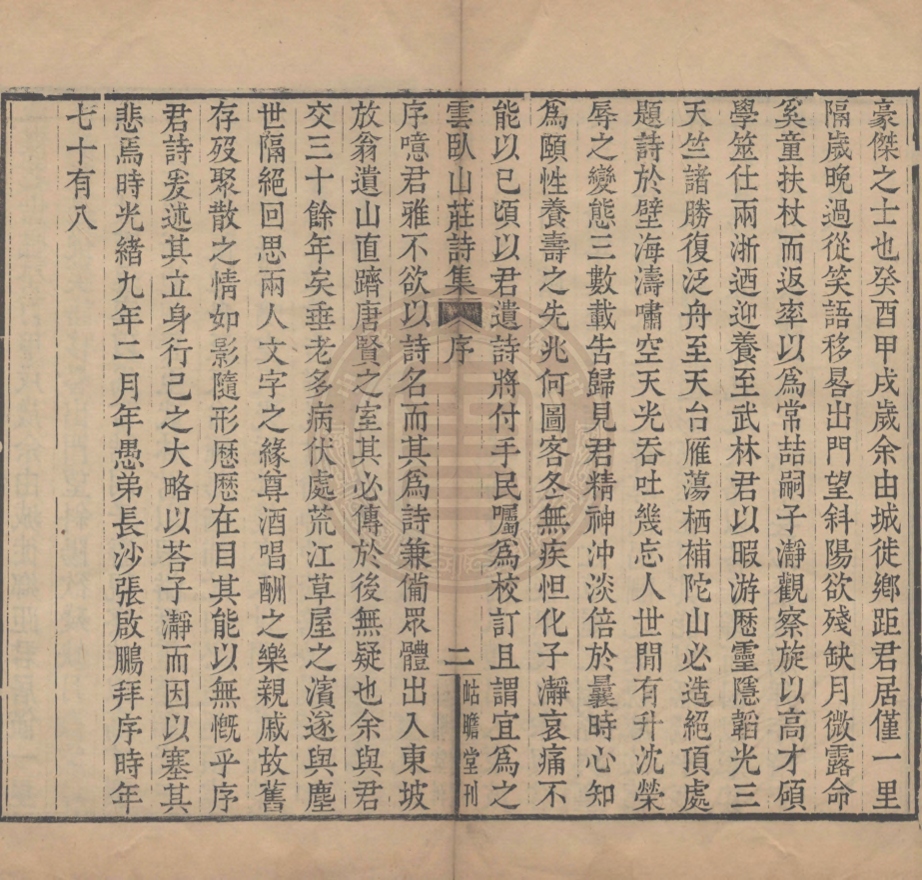 豪傑之士也癸酉甲戌歲余由城徙鄉距君居僅一里
隔歲晚過從笑語移晷出門望斜陽欲殘缺月微露命
奚童扶杖而返率以爲常喆嗣子瀞觀察旋以高才碩
學筮仕兩浙迺迎養至武林君以暇游歷靈隱韜光三
天竺諸勝復泛舟至天台雁蕩栖補陀山必造絕頂處
題詩於壁海濤嘯空天光吞吐幾忘人世閒有升沈榮
辱之變態三數載告歸見君精神沖淡倍於曩時心知
爲頤性養壽之先兆何圖客冬無疾怛化子瀞哀痛不
能以已頃以君遺詩將付手民囑爲校訂且謂宜爲之
雲臥山莊詩集 序 二 岵瞻堂刊
序噫君雅不欲以詩名而其爲詩兼備眾體出入東坡
放翁遺山直躋唐賢之室其必傳於後無疑也余與君
交三十餘年矣垂老多病伏處荒江草屋之濱遂與塵
世隔絕回思兩人文字之緣尊酒唱酬之樂親戚故舊
存歿聚散之情如影隨形歷歷在目其能以無慨乎序
君詩爰述其立身行己之大略以荅子瀞而因以塞其
悲焉時光緒九年二月年愚弟長沙張啟鵬拜序時年
七十有八